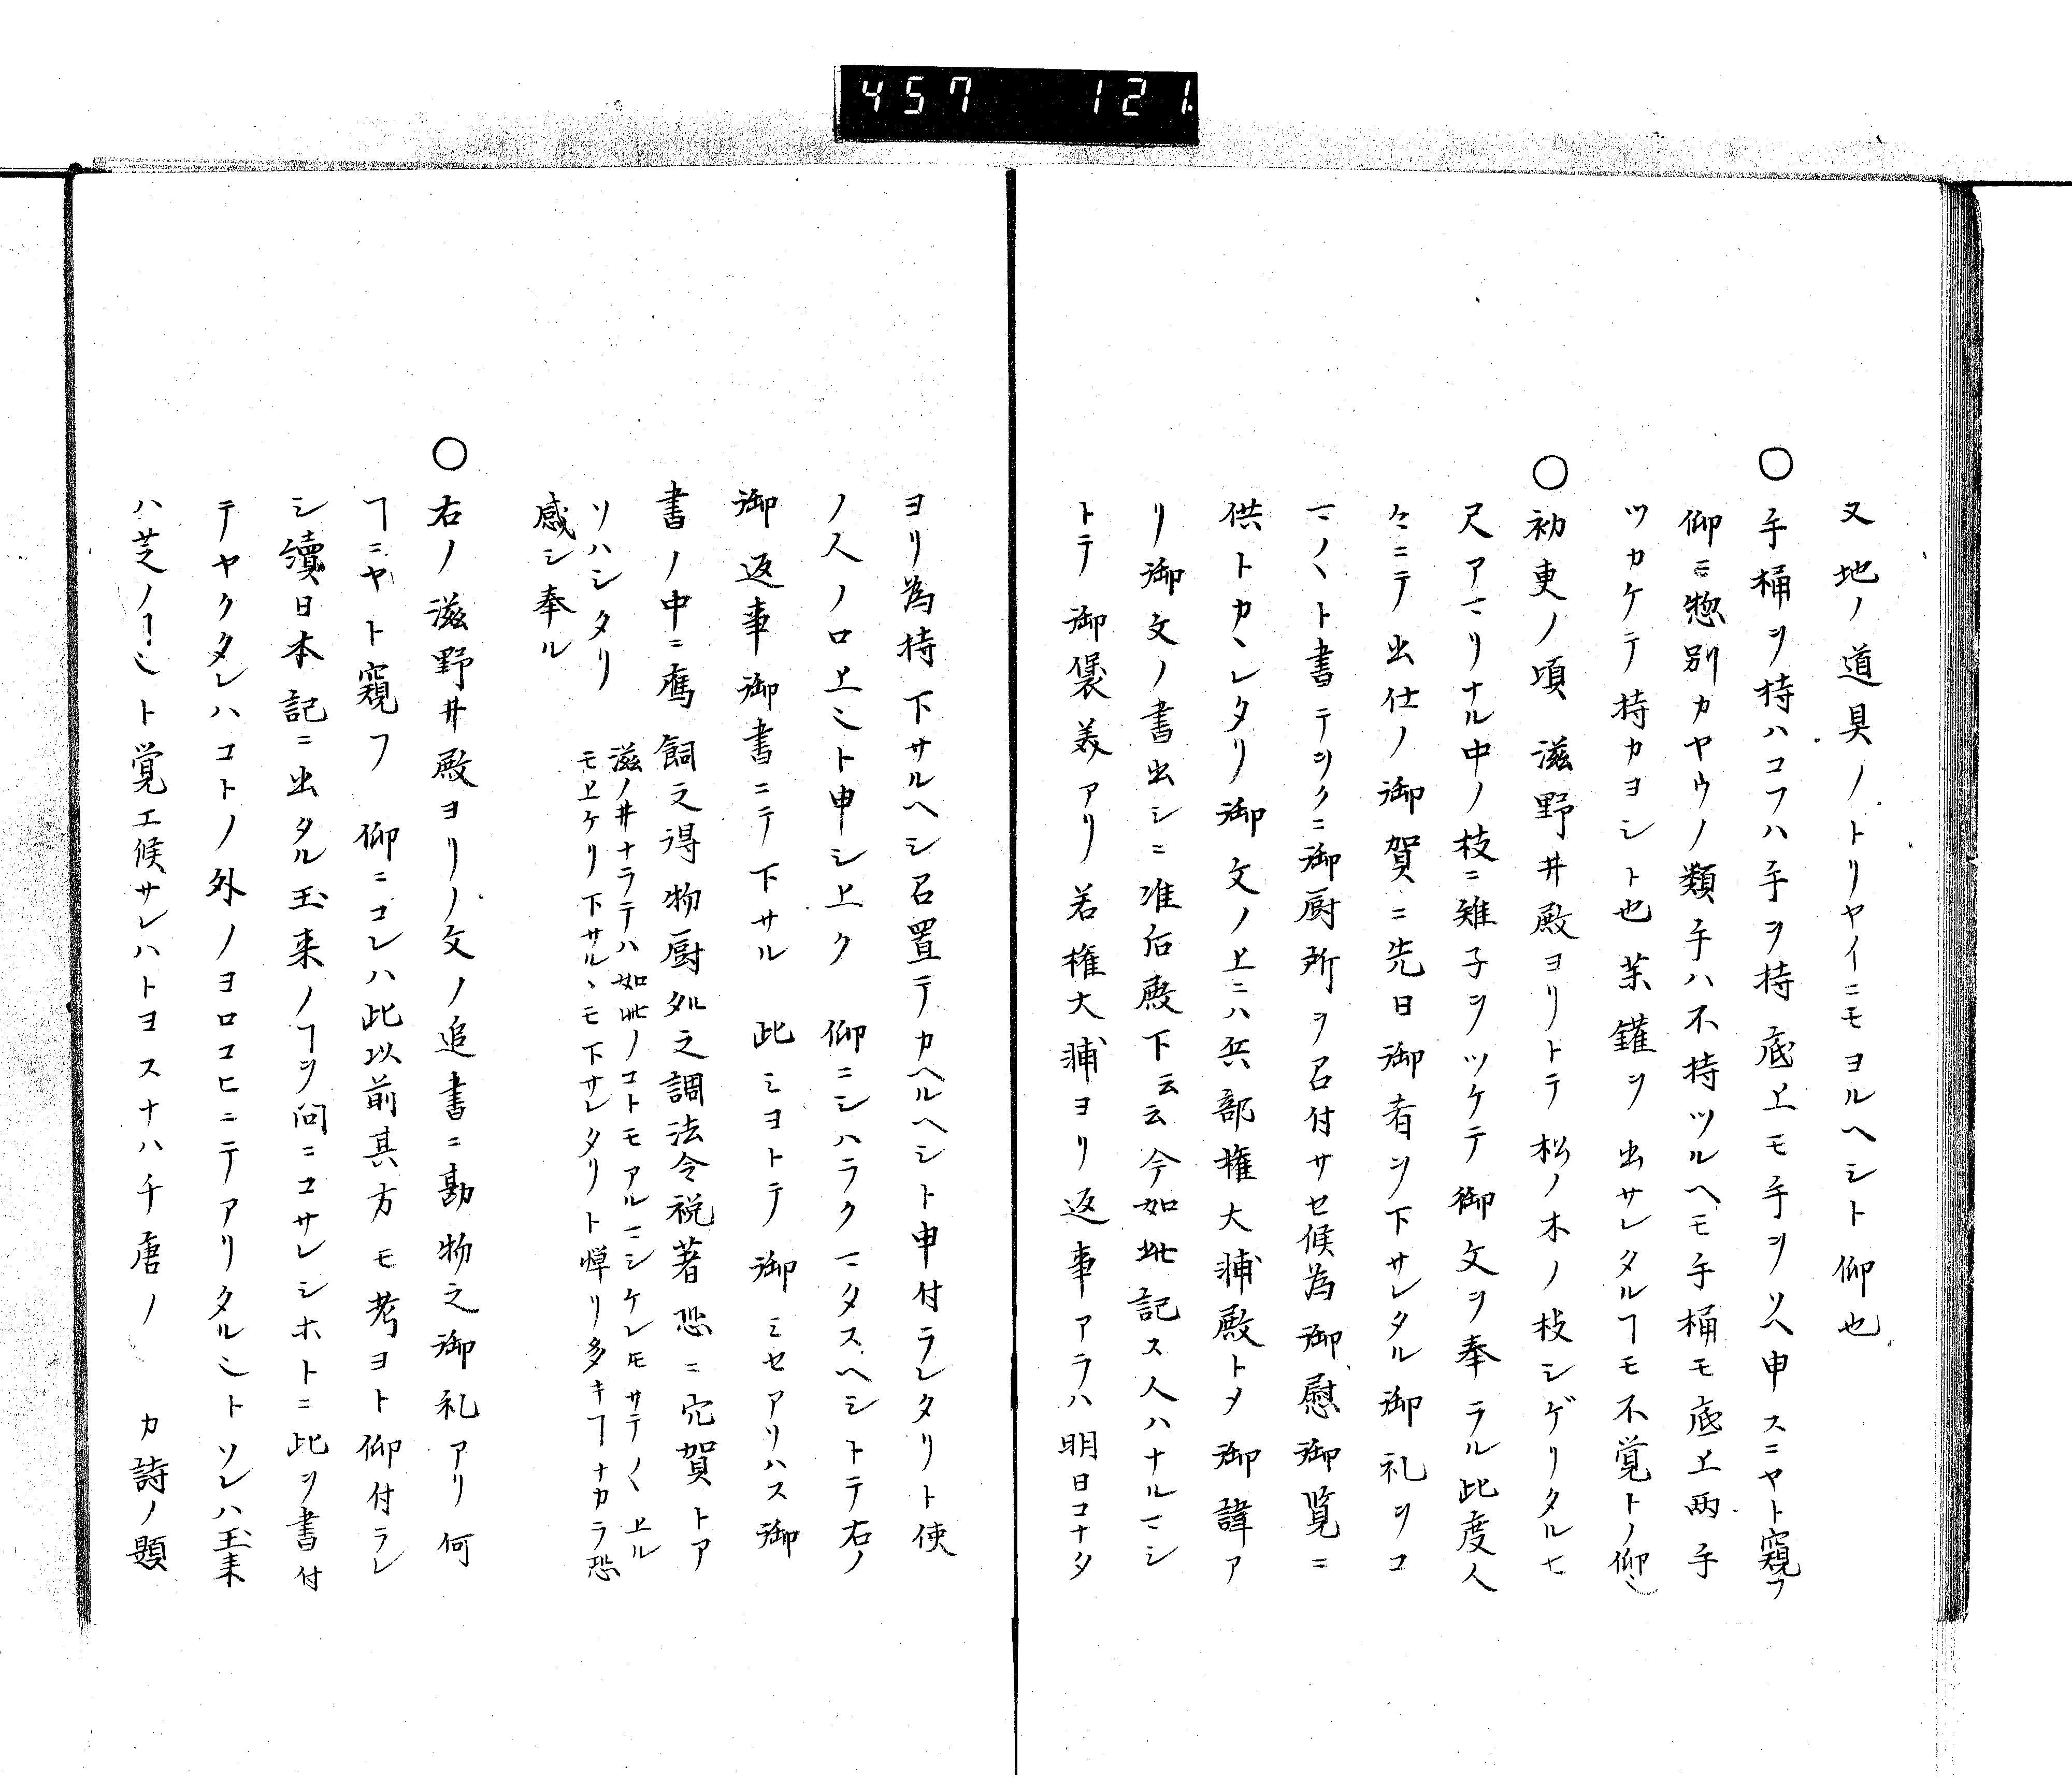 457 121
又地ノ道具ノトリヤイニモヨルヘシト仰也
○手桶ヲ持ハコフハ手ヲ持底上モ手ヲソヘ申スニヤト窺フ
仰ニ惣別カヤウノ類手ハ不持ツルヘモ手桶モ底上両手
ツカケテ持カヨシト也茶鑵ヲ出サレタルヿモ不覚トノ仰也
○初更ノ頃滋野井殿ヨリトテ松ノ木ノ枝シゲリタル七
尺アマリナル中ノ枝ニ雉子ヲツケテ御文ヲ奉ラル此度人
々ニテ出仕ノ御賀ニ先日御肴ヲ下サレタル御礼ヲコ
マ〳〵ト書テヲクニ御厨所ヲ召付サセ候為御慰御覧ニ
供トカヽレタリ御文ノ上ニハ兵部権大浦殿トメ御諱ア
リ御文ノ書出シニ准后殿下云云今如此記ス人ハナルマシ
トテ御褒美アリ若権大浦ヨリ返事アラハ明日コナタ
ヨリ為持下サルヘシ召置テカヘルヘシト申付ラレタリト使
ノ人ノ口上也ト申シ上ク仰ニシハラクマタスヘシトテ右ノ
御返事御書ニテ下サル此ミヨトテ御ミセアリハス御
書ノ中ニ鷹飼之得物厨処之調法令祝著恐ニ穴賀トア
ソハシタリ
滋ノ井ナラテハ如此ノコトモアルマシケレモサテ〳〵上ル
モ上ケリ下サルヽモ下サレタリト憚リ多キヿナカラ恐
感シ奉ル
○右ノ滋野井殿ヨリノ文ノ追書ニ勘物之御礼アリ何
ヿニヤト窺フ仰ニコレハ此以前其方モ考ヨト仰付ラレ
シ續日本記ニ出タル玉来ノヿヲ問ニコサレシホトニ此ヲ書付
テヤクタレハコトノ外ノヨロコヒニテアリタル也トソレハ玉来
ハ芝ノヿ也ト覚エ候サレハトヨスナハチ唐ノ カ詩ノ題